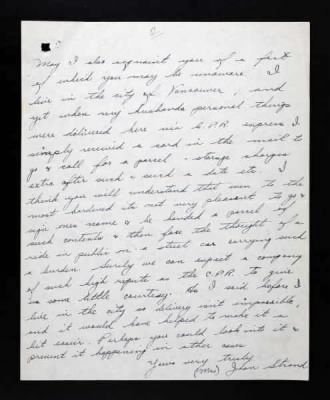 2/
May I also acquaint you of a fact
of which you may be unaware. I
live in the city of Vancouver, and
yet when my husbands personal things
were delivered here via C.P.R express I
simply received a card in the mail to
go & call for a parcel - storage charges
extra after such & such a date etc. I
think you will understand that even to the
most hardened its not very pleasant to go &
sign ones name & be handed a parcel of
such contents & then face the thought of a
ride in public on a street car carrying such
a burden. Surely we can expect a company
of such high repute as the C.P.R. to give
us some little courtesy. As I said before I
live in the city so delivery isn't impossible,
and it would have helped to make it a
bit easier. Perhaps you could look into it &
prevent it happening in other cases
Yours very truly
(Mrs) Jean Strand